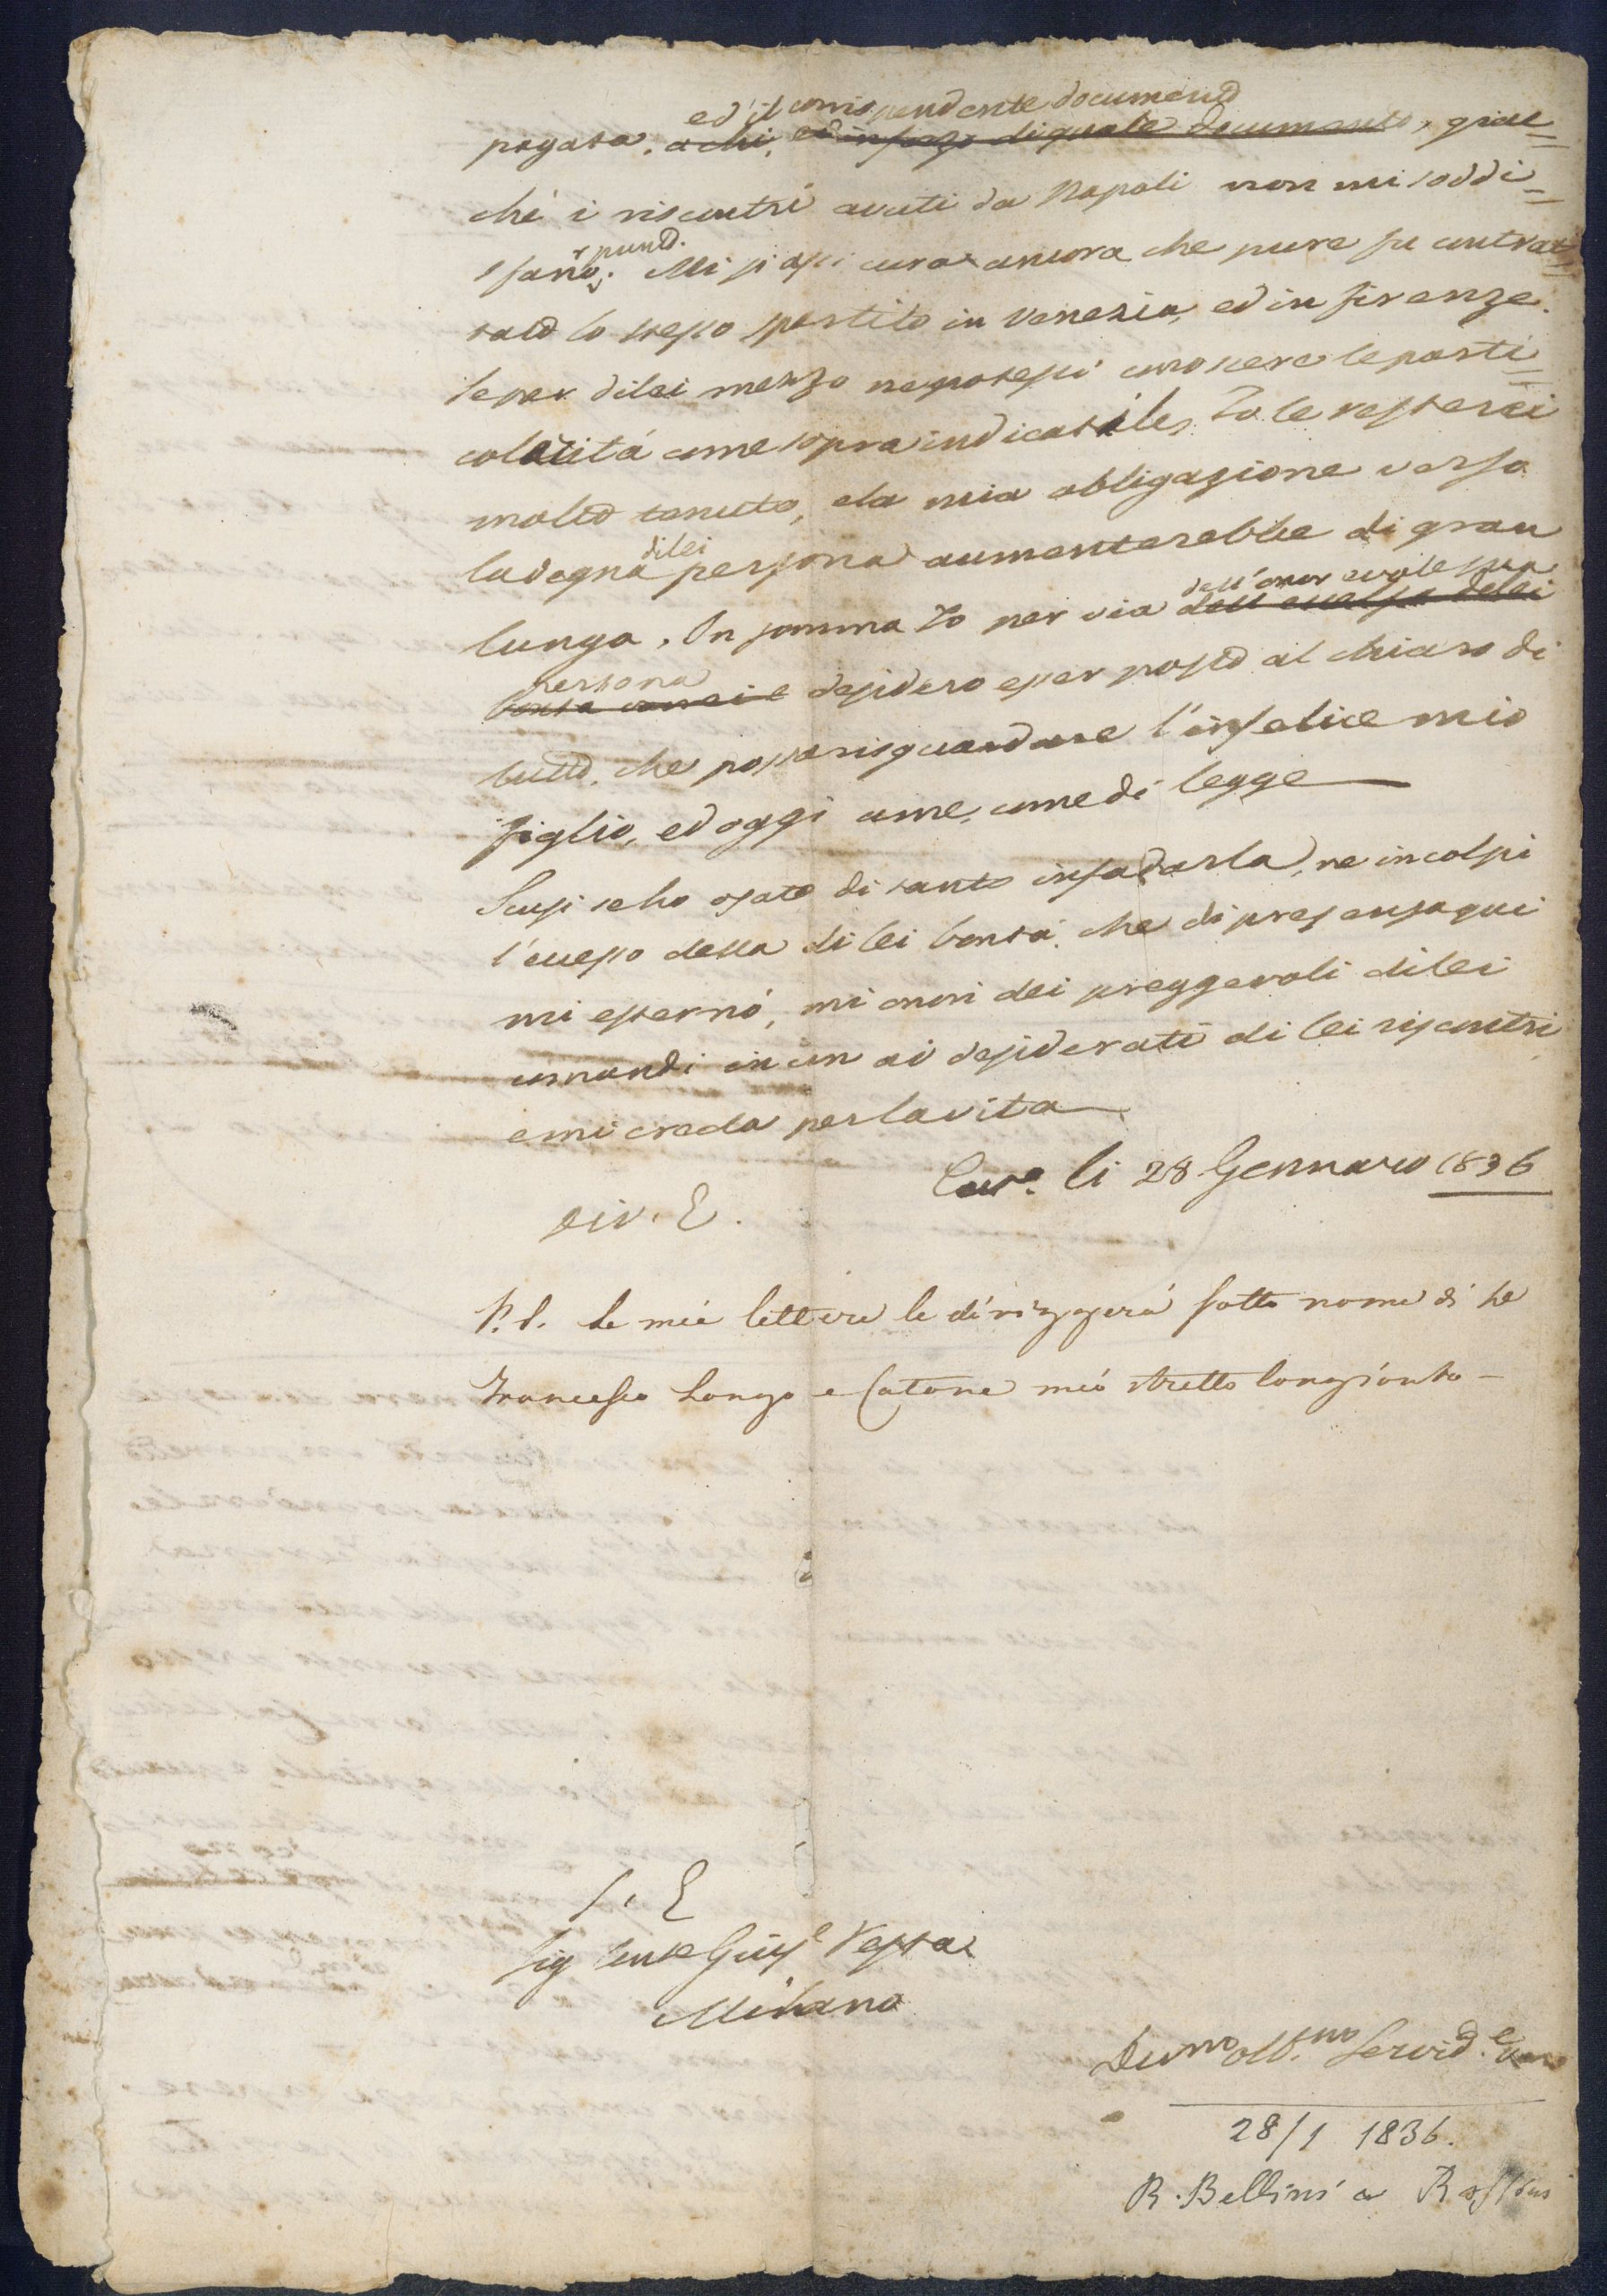 ed il corrispondente documento
pagata, a chi, ed in forza di quale documento, giac=
ché i riscontri avuti da Napoli non mi soddi=
sfano, Mi si assicura ancora che pure fu contrat=
tato lo stesso partito in Venezia, ed in Firenze.
Se per di lei mezzo ne potessi conoscere le parti=
colarità come sopra indicatele, Io le resterei
molto tenuto, e la mia obligazione verso
la degna di lei persona aumenterebbe di gran
lunga. In somma Io per via dell'onorevole sua
persona desidero esser posto al chiaro di
tutto, che possa risguardare l'infelice mio
figlio, ed oggi a me, come di legge
Scusi se ho osato di tanto infadarla, ne incolpi
l'eccesso della di lei bontà, che di presenza qui
mi esternò, mi onori dei preggevoli di lei
comandi in un ai desiderati di lei riscontri
e mi creda per la vita
li 28 Gennaro 1836
Div. E.
P.S. Le mie lettere le dirizzerà sotto nome di
Francesco Longo e Catone mio stretto Congionto –
S. E
Sig Giuse Vessa
Milano
Dumo obb.mo Servid.e
28/1 1836.
R. Bellini a